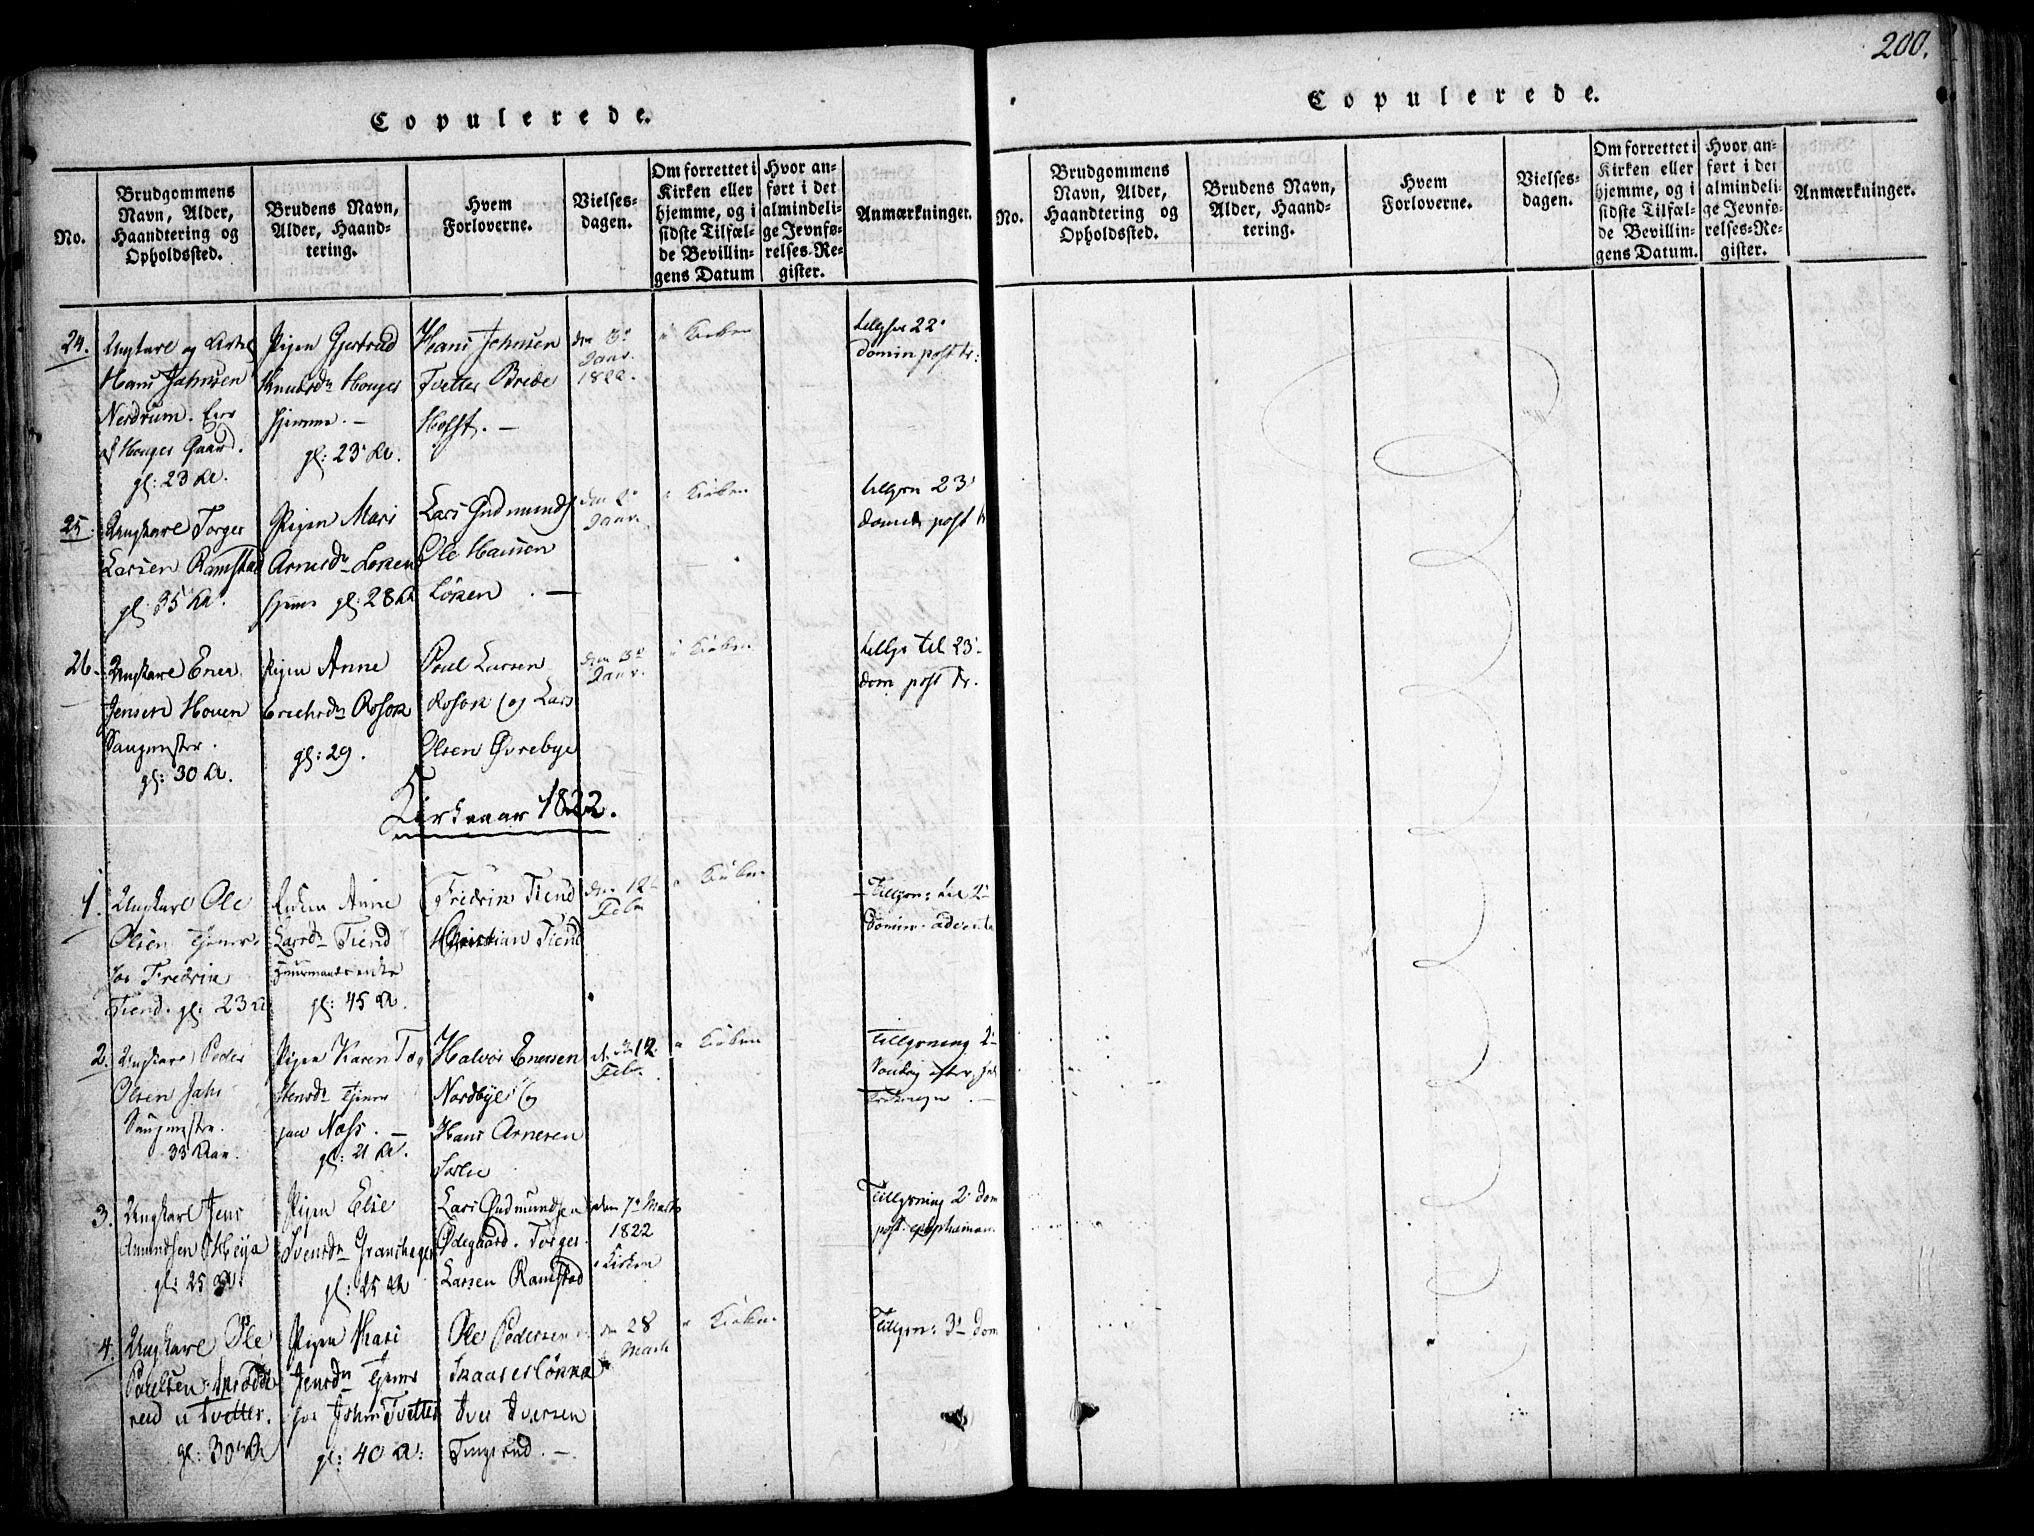 200.
Copulerede.
No.
Brudgommens Navn, Alder, Haandtering og Opholdssted.
Brudens Navn, Alder, Haandtering.
Hvem Forloverne.
Vielsesdagen.
Om forrettet i Kirken eller hjemme, og i sidste Tilfælde Bevillingens Datum
Hvor anført i det almindelige Jevnførelses-Register.
Anmærkninger.
24.
Ungkarl og
Hans Johnsen
Nerdrum.
gl: 23 Aar.
Pigen Gjertrud
Knudsdr Houger
hjemme. —
gl: 23 Aar.
Hans Johnsen
Tvetter Brede
Holst. —
den 3de
Janr.
1822.
i Kirken
22'
domin post tr:
25.
Ungkarl Torger
Larsen Ramstad
gl: 35 Aar.
Pigen Mari
Arnesdr Løken
hjeme gl: 28 Aar
Lars Gudmunds
Ole Hansen
Løken. —
den
Janr.
i Kirken
23'
post tr
26.
Ungkarl Ener
Jensen Hoven
Saugmester.
gl: 30 Aar.
Pigen Anne
Erichsdr Rosok
gl: 29.
Poul Larsen
Rosok og Lars
Olsen Øvrebye
den 3de
Janr.
i Kirken
til 23'
dom post tr.
Kirkeaar 1822.
1.
Ungkarl Ole
Olsen tjener
hos Fredrik
Tiend. gl: 23 Aar
Enken Anne
Larsdr Tiend
Huusmands enke
gl: 45 Aar.
Fredrik Tiend
Christian Tiend
den 12
Febr
i Kirken
Tillysn: til 2'
Domin. advent
2.
Ungkarl Peder
Olsen Jahr
Saugmester.
33 Aar.
Pigen Karen To
stensdr tjener
paa Næss. —
gl: 21 Aar.
Halvor Enersen
Nordbye og
Hans Arnesen
Sørlie
d. 12.
Febr.
i Kirken
Tillysning 2'
Søndag efter hel
3.
Ungkarl Jens
Amundsen Heya
gl: 25 Aar.
Pigen Else
Svensdr Granshagen
gl: 25 Aar
Lars Gudmundsen
Ødegaard. Torger
Larsen Ramstad
den 7de Marts
1822
i Kirken
Tillysning 2' dom
post. epiphanian
4.
Ungkarl Ole
Poulsen
Tvetter.
gl: 30 Aar
Pigen Kari
Jensdr tjener
hos John Tvetter
gl: 40 Aar:
Ole Pedersen
Iver Iversen
Tingsrud. —
den 28
Marts
i Kirken
Tillysn: 3' dom
Copulerede.
No.
Brudgommens Navn, Alder, Haandtering og Opholdssted.
Brudens Navn, Alder, Haandtering.
Hvem Forloverne.
Vielsesdagen.
Om forrettet i Kirken eller hjemme, og i sidste Tilfælde Bevillingens Datum.
Hvor anført i det almindelige Jevnførelses-Register.
Anmærkninger.